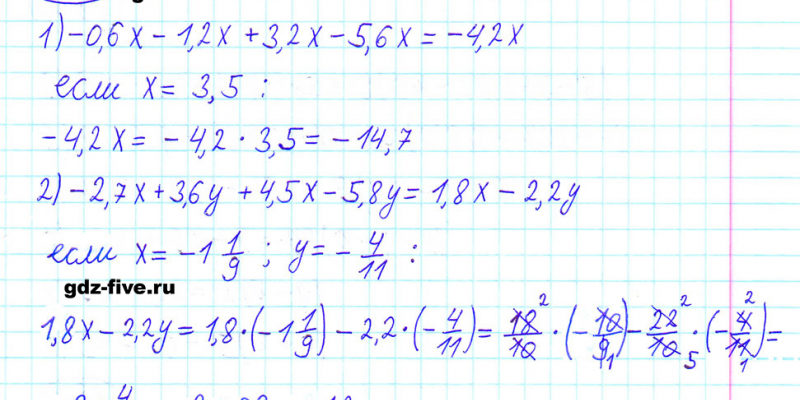 1) -0,6x - 1,2x + 3,2x - 5,6x = -4,2x
если x = 3,5 :
-4,2x = -4,2 · 3,5 = -14,7
2) -2,7x + 3,6y + 4,5x - 5,8y = 1,8x - 2,2y
если x = -1 1/9 ; y = - 4/11 :
gdz-five.ru
1,8x - 2,2y = 1,8 · (-1 1/9) - 2,2 · (- 4/11) = 18/10 2 · (- 10/9 1) - 22/10 2 5 · (- 4/11 2 1) =